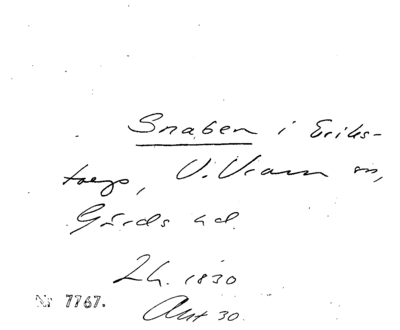 Snaben i Eriks-
torp, V. Vram sn,
Gärds hd.
Lh. 1830
Nr 7767.
Akt 30.